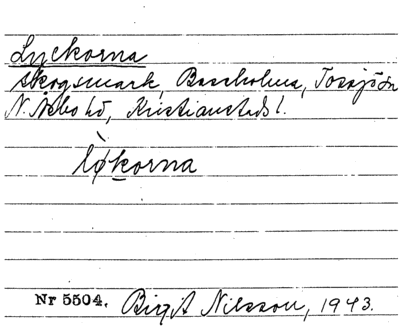 Lyckorna
skogsmark, Bassholma, Tossjön
N. Åsbo hd, Kristianstads l.
lǿkorna
Nr 5504. Birgit Nilsson, 1943.